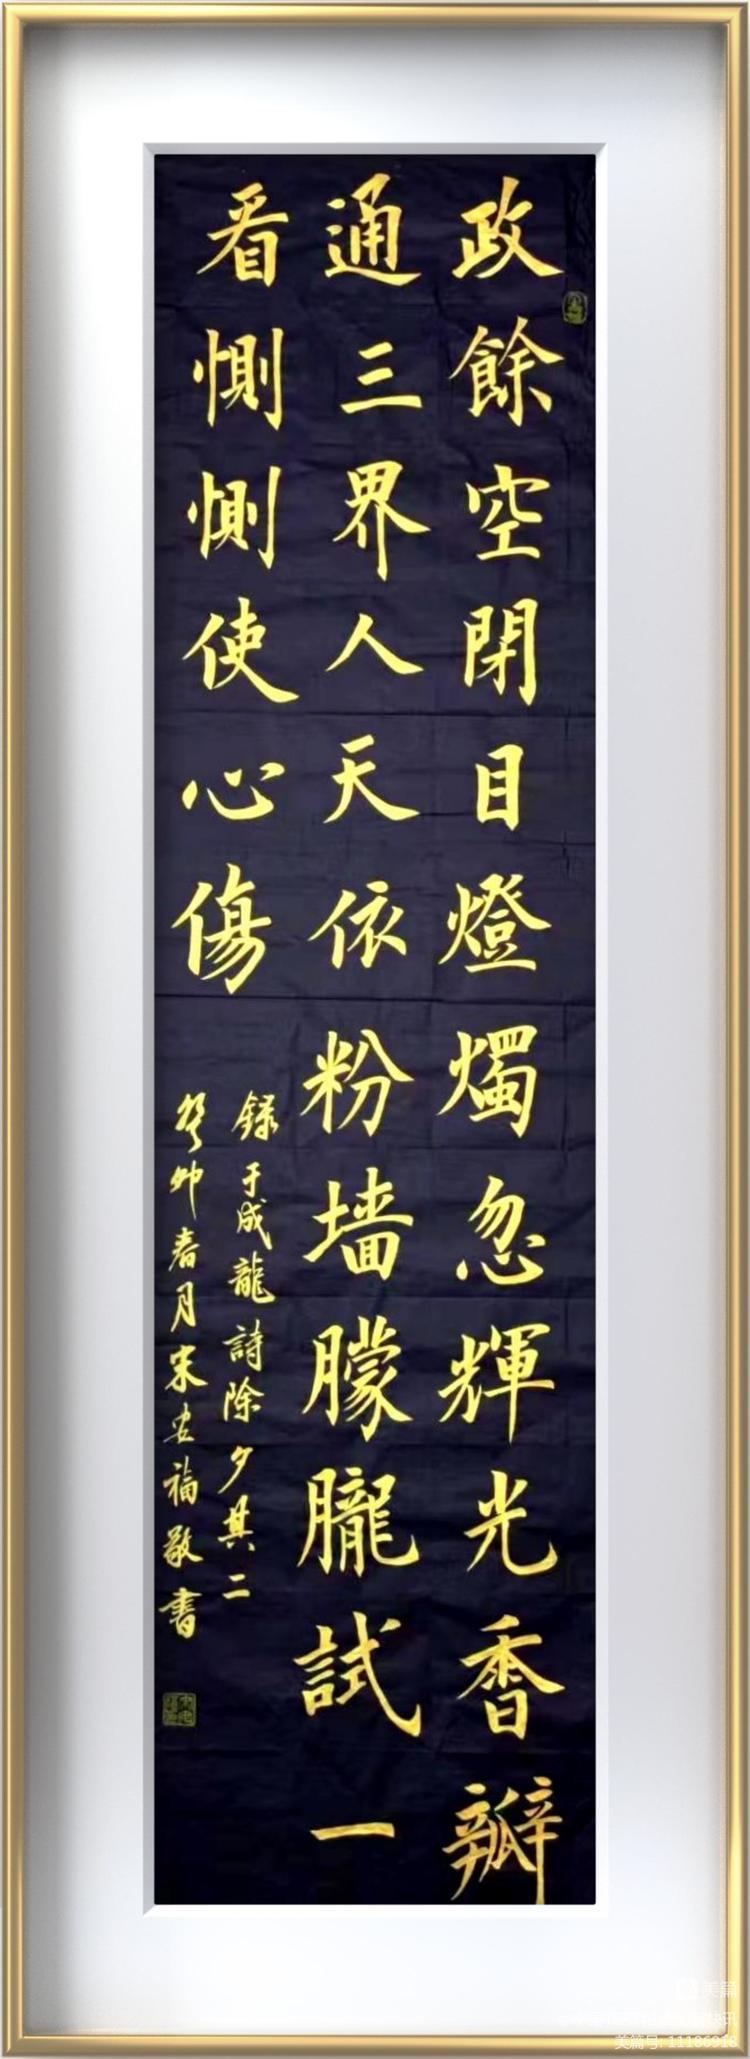 政餘空閉目燈燭忽輝光香瓣
通三界人天依粉墙朦朧試一
看惻惻使心傷
録于成龍詩除夕其二
癸卯春月宋安福敬書
美篇
美篇号: 11186918